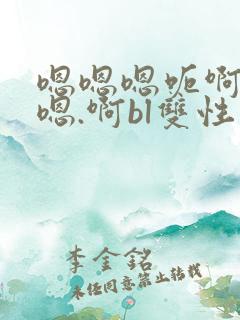 嗯嗯嗯呃啊
嗯.啊bl雙性
李金銘
未經同意禁止转载